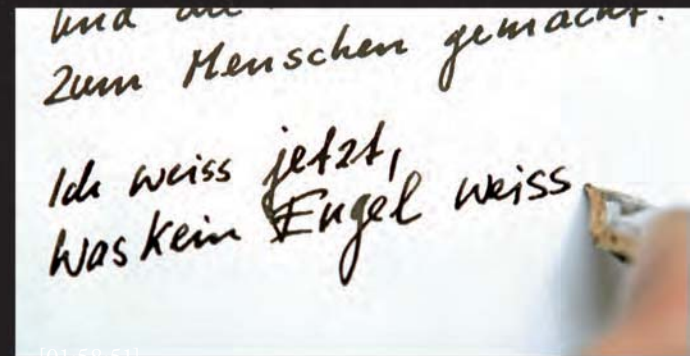 und
zum Menschen gemacht.
Ich weiss jetzt,
was kein Engel weiss
[01:58:51]